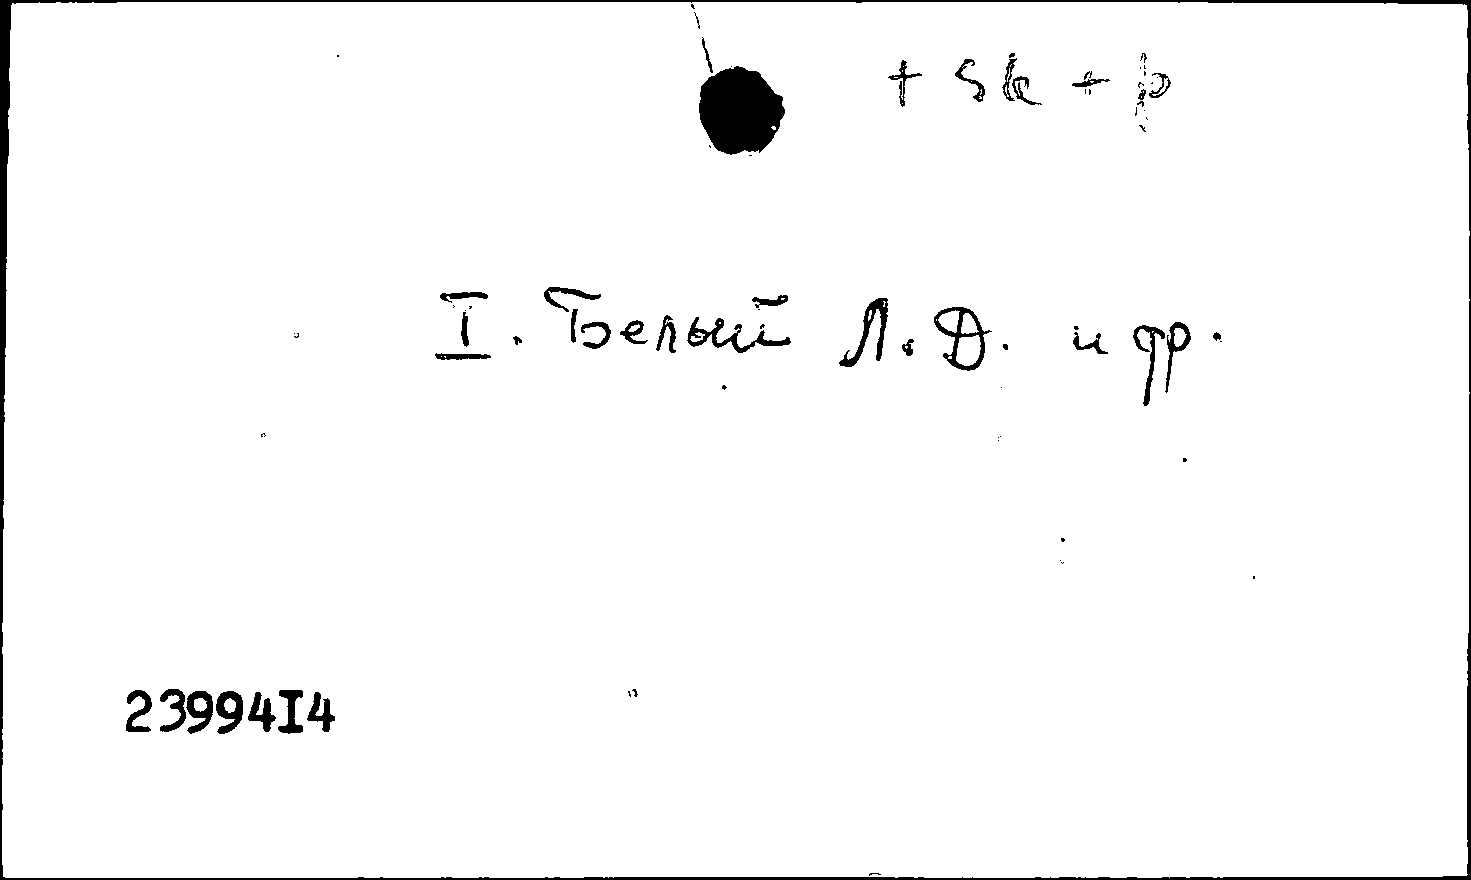 + sk + p
I. Белый Л. Д. и др.
23994I4